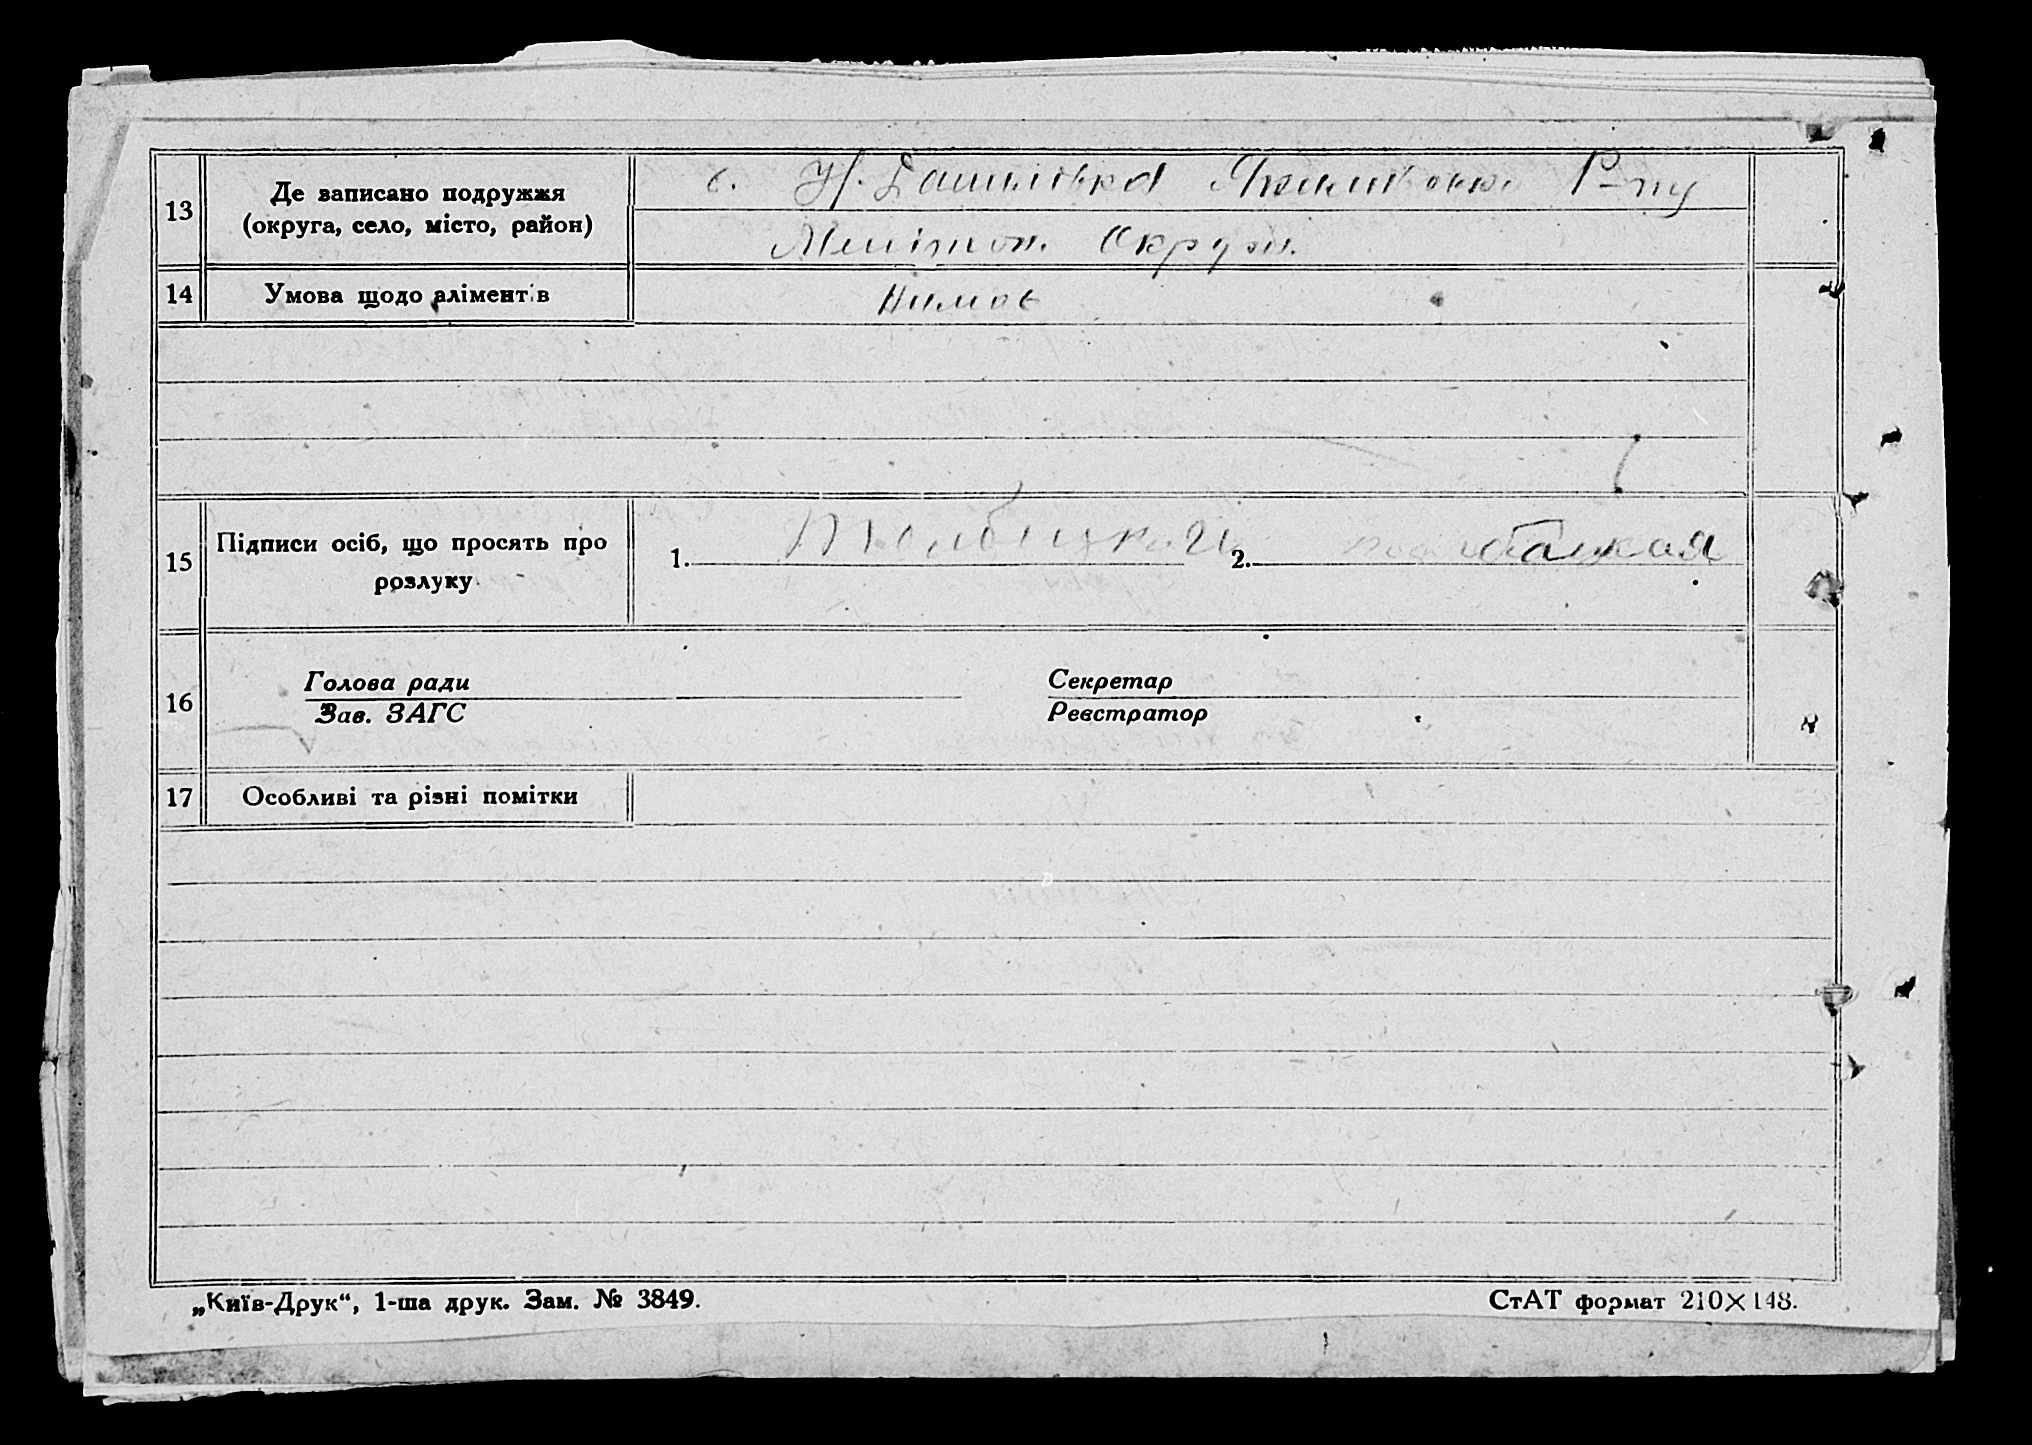 13 Де записано подружжя
(округа, село, місто, район)
с. Н. Данилівка Р-ну
Меліт. Округи.
14 Умова щодо аліментів
Немає
15 Підписи осіб, що просять про
розлуку
1. 2.
16 Голова ради
Зав. ЗАГС
Секретар
Реєстратор
17 Особливі та різні помітки
„Київ-Друк“, 1-ша друк. Зам. № 3849.
СтАТ формат 210×148.